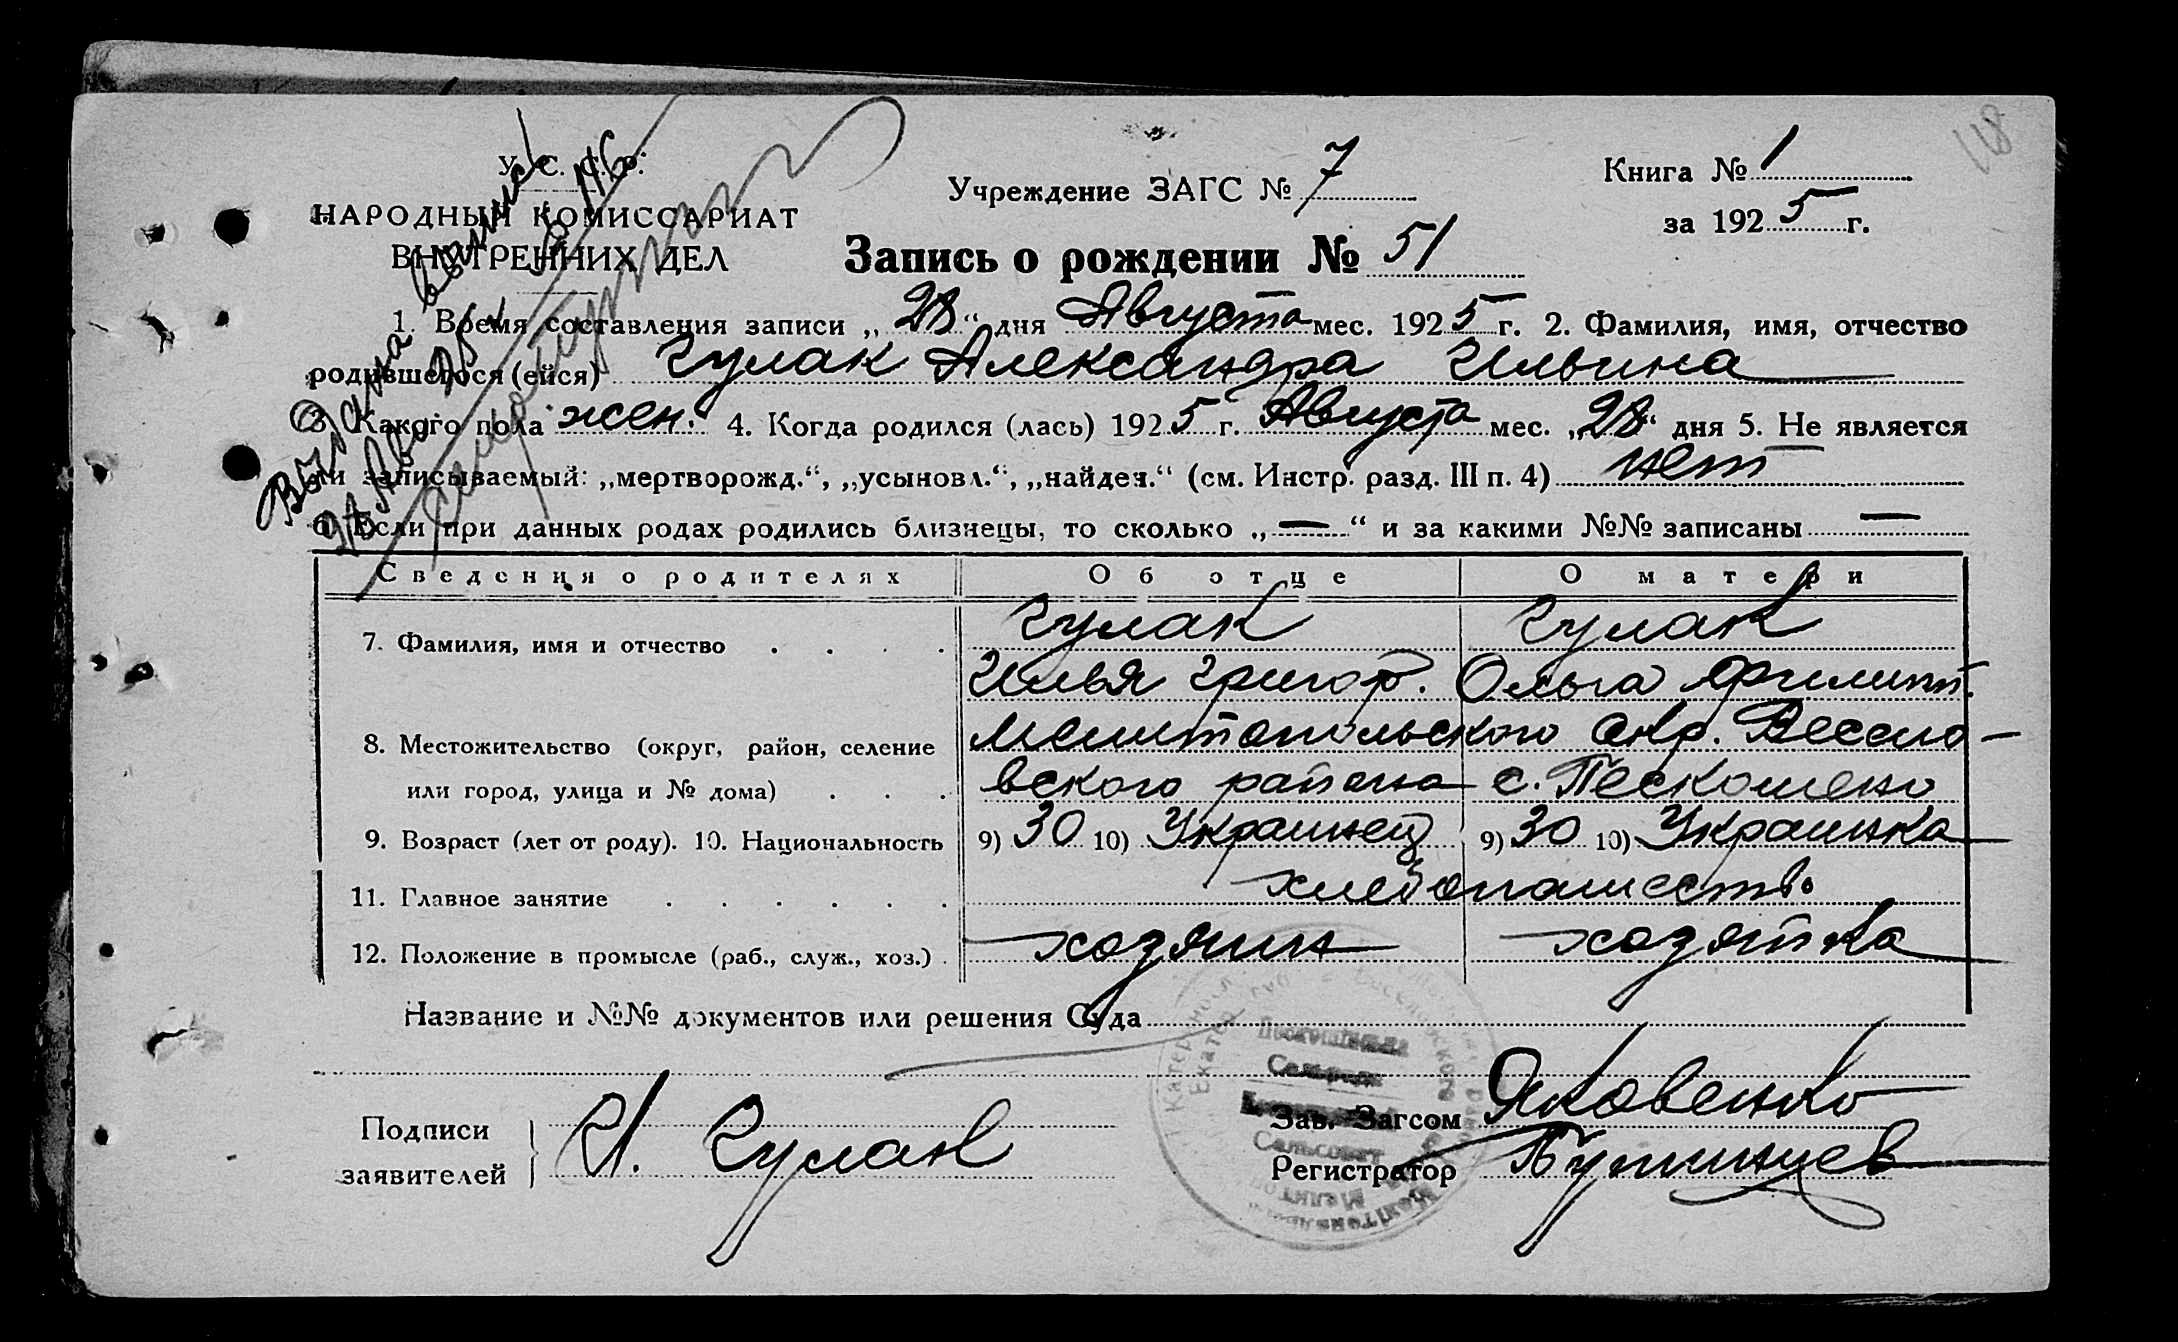 118
У. С. С. Р.
НАРОДНЫЙ КОМИССАРИАТ
ВНУТРЕННИХ ДЕЛ
Учреждение ЗАГС № 7
Книга № 1
за 1925 г.
Запись о рождении № 51
1. Время составления записи „28“ дня Августа мес. 1925 г. 2. Фамилия, имя, отчество
родившегося (ейся) Гулак Александра Ильина
3. Какого пола жен. 4. Когда родился (лась) 1925 г. Августа мес. „28“ дня 5. Не является
ли записываемый: „мертворожд.“, „усыновл.“, „найден.“ (см. Инстр. разд. III п. 4) нет
6. Если при данных родах родились близнецы, то сколько „—“ и за какими №№ записаны —
Выдана выпись
Сведения о родителях Об отце О матери
7. Фамилия, имя и отчество Гулак Гулак
Илья Григор. Ольга Филип.
8. Местожительство (округ, район, селение Мелитопольского Окр. Весело-
или город, улица и № дома) вского района с. Пескошено
9. Возраст (лет от роду). 10. Национальность 9) 30 10) Украинец 9) 30 10) Украинка
11. Главное занятие хлебопашество
12. Положение в промысле (раб., служ., хоз.) хозяин хозяйка
Название и №№ документов или решения Суда
Сельрада
Сельсовет
Подписи
заявителей И. Гулак
Зав. Загсом Яковенко
Регистратор